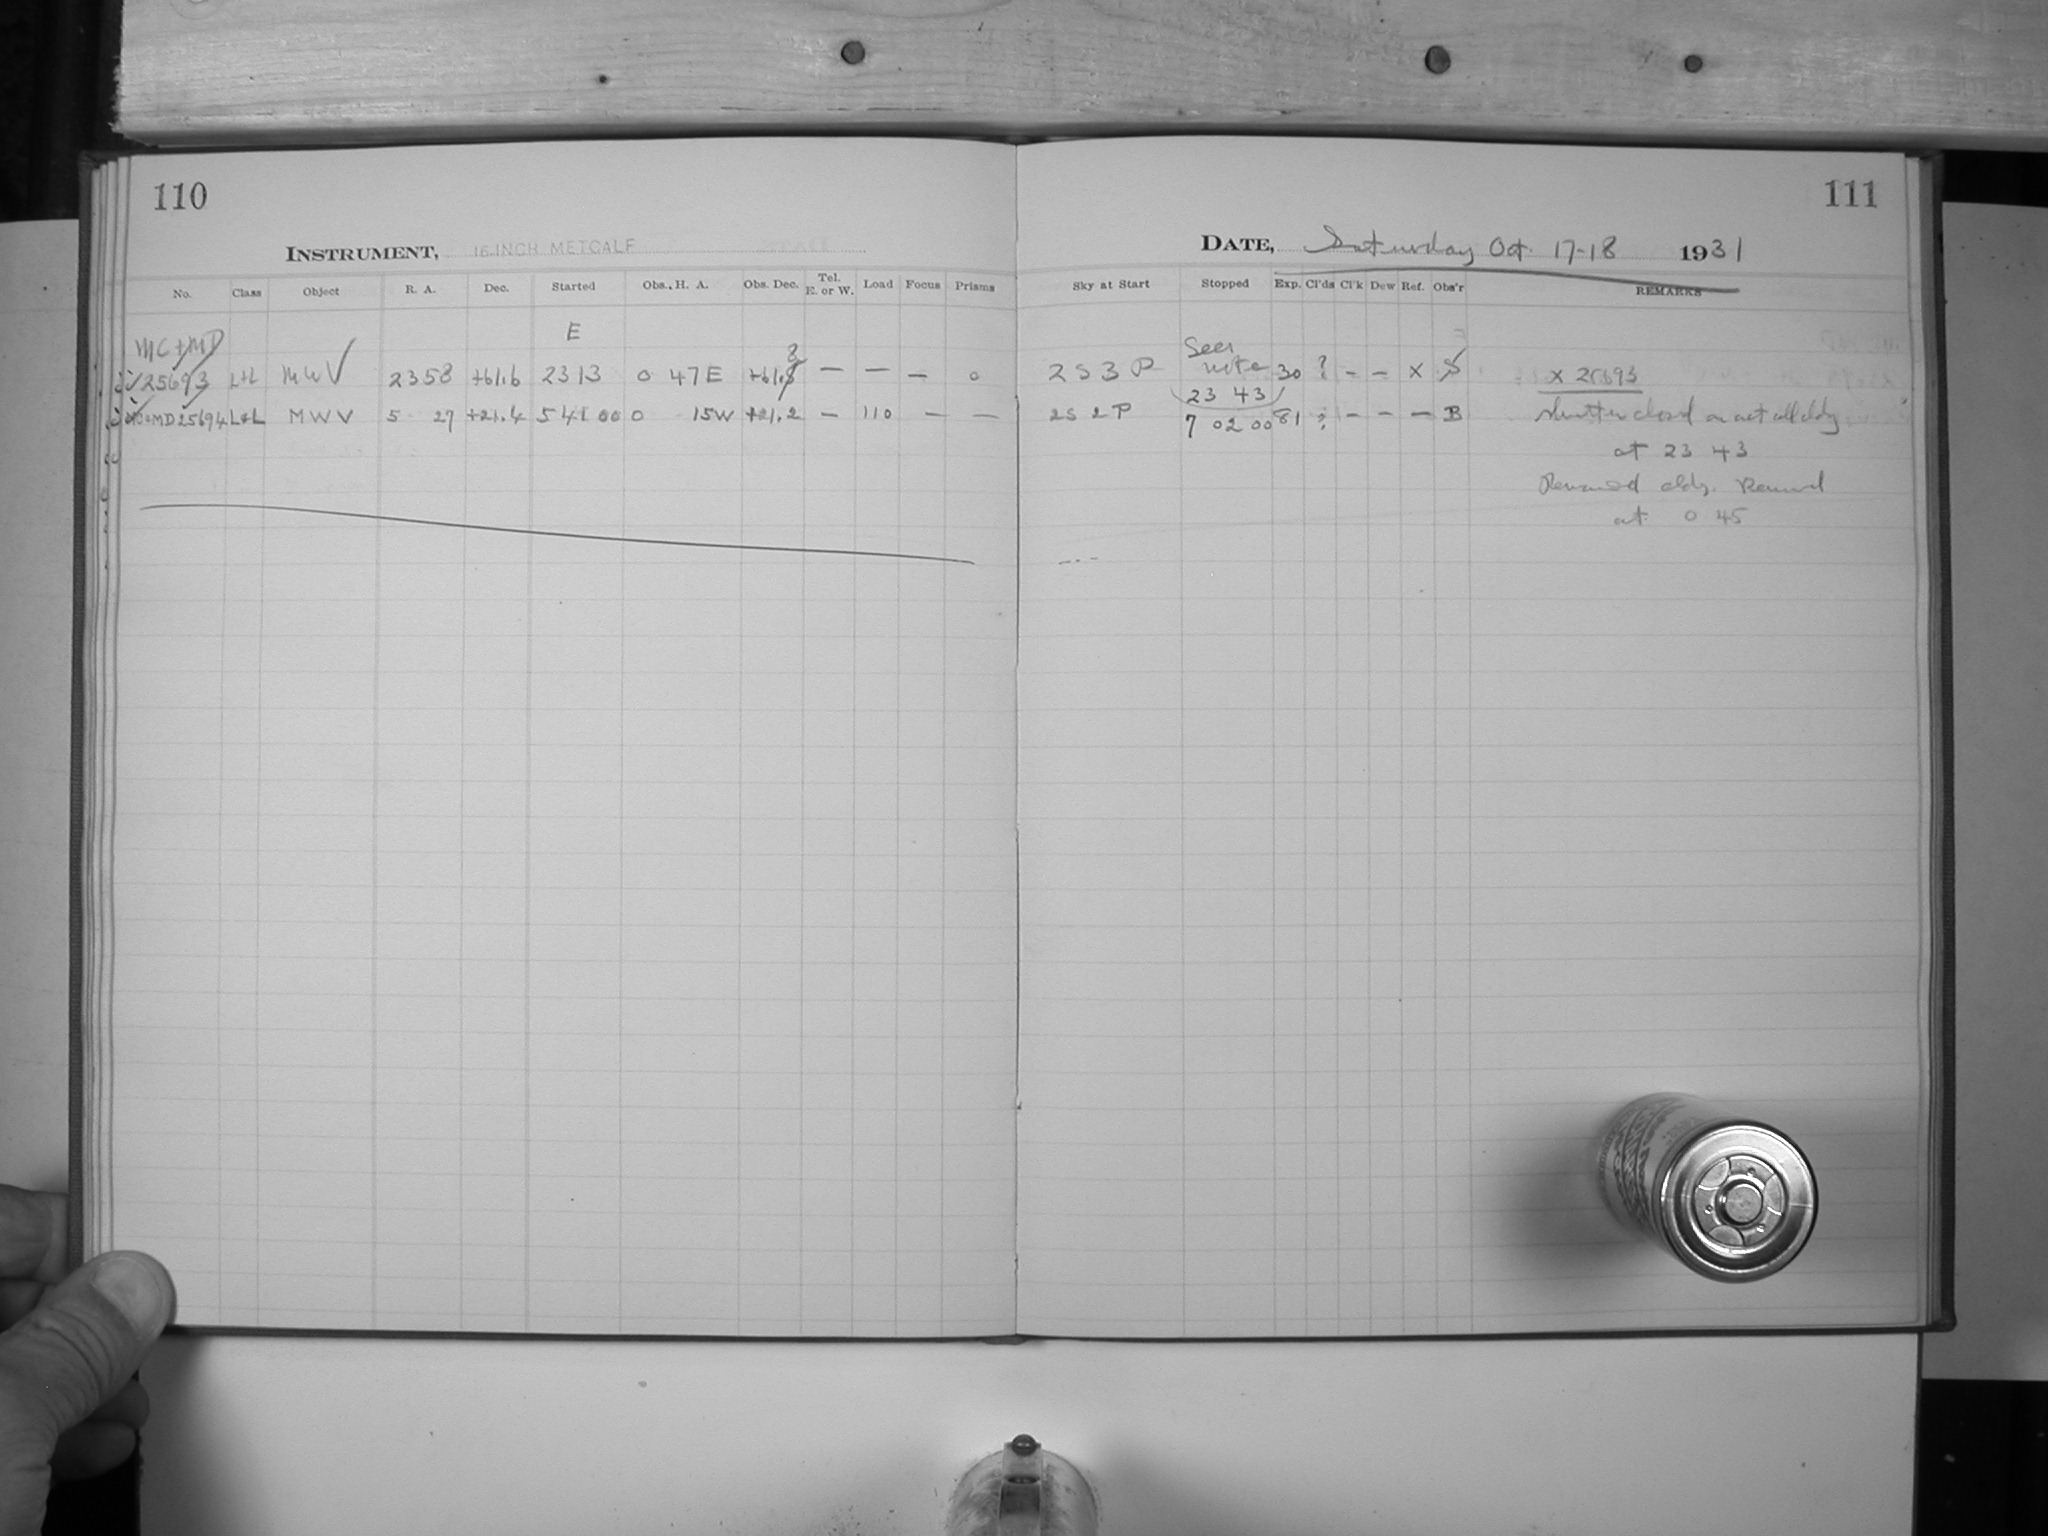 110
111
INSTRUMENT, 16-INCH METCALF
DATE, Saturday Oct. 17-18 1931
No. Class Object R. A. Dec. Started Obs. H. A. Obs. Dec. Tel. E. or W. Load Focus Prisms
Sky at Start Stopped Exp. Cl'ds Cl'k Dew Ref. Obs'r REMARKS
E
MC+MD 8 See
25693 L+L MWV 2358 +61.6 2313 0 47E +61.8 — — — 0 2 S 3 P note 30 ? – – X S X 25693
23 43
MC+MD 25694 L+L MWV 5 27 +21.4 541 00 0 15W +21.2 — 110 — — 2S 2P 7 02 00 81 ? – – – B Shutter closed on act all cldy
at 23 43
Remained cldy. Removed
at 0 45